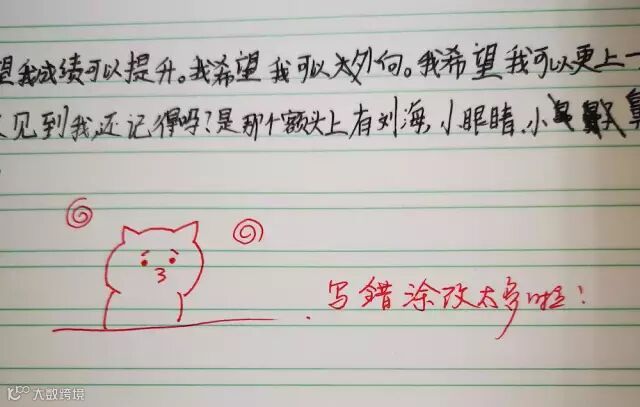 望我成绩可以提升。我希望我可以大外向。我希望我可以更上一
见到我,还记得吗?是那个额头上有刘海,小眼睛,小
写错涂改太多啦!
大数跨境